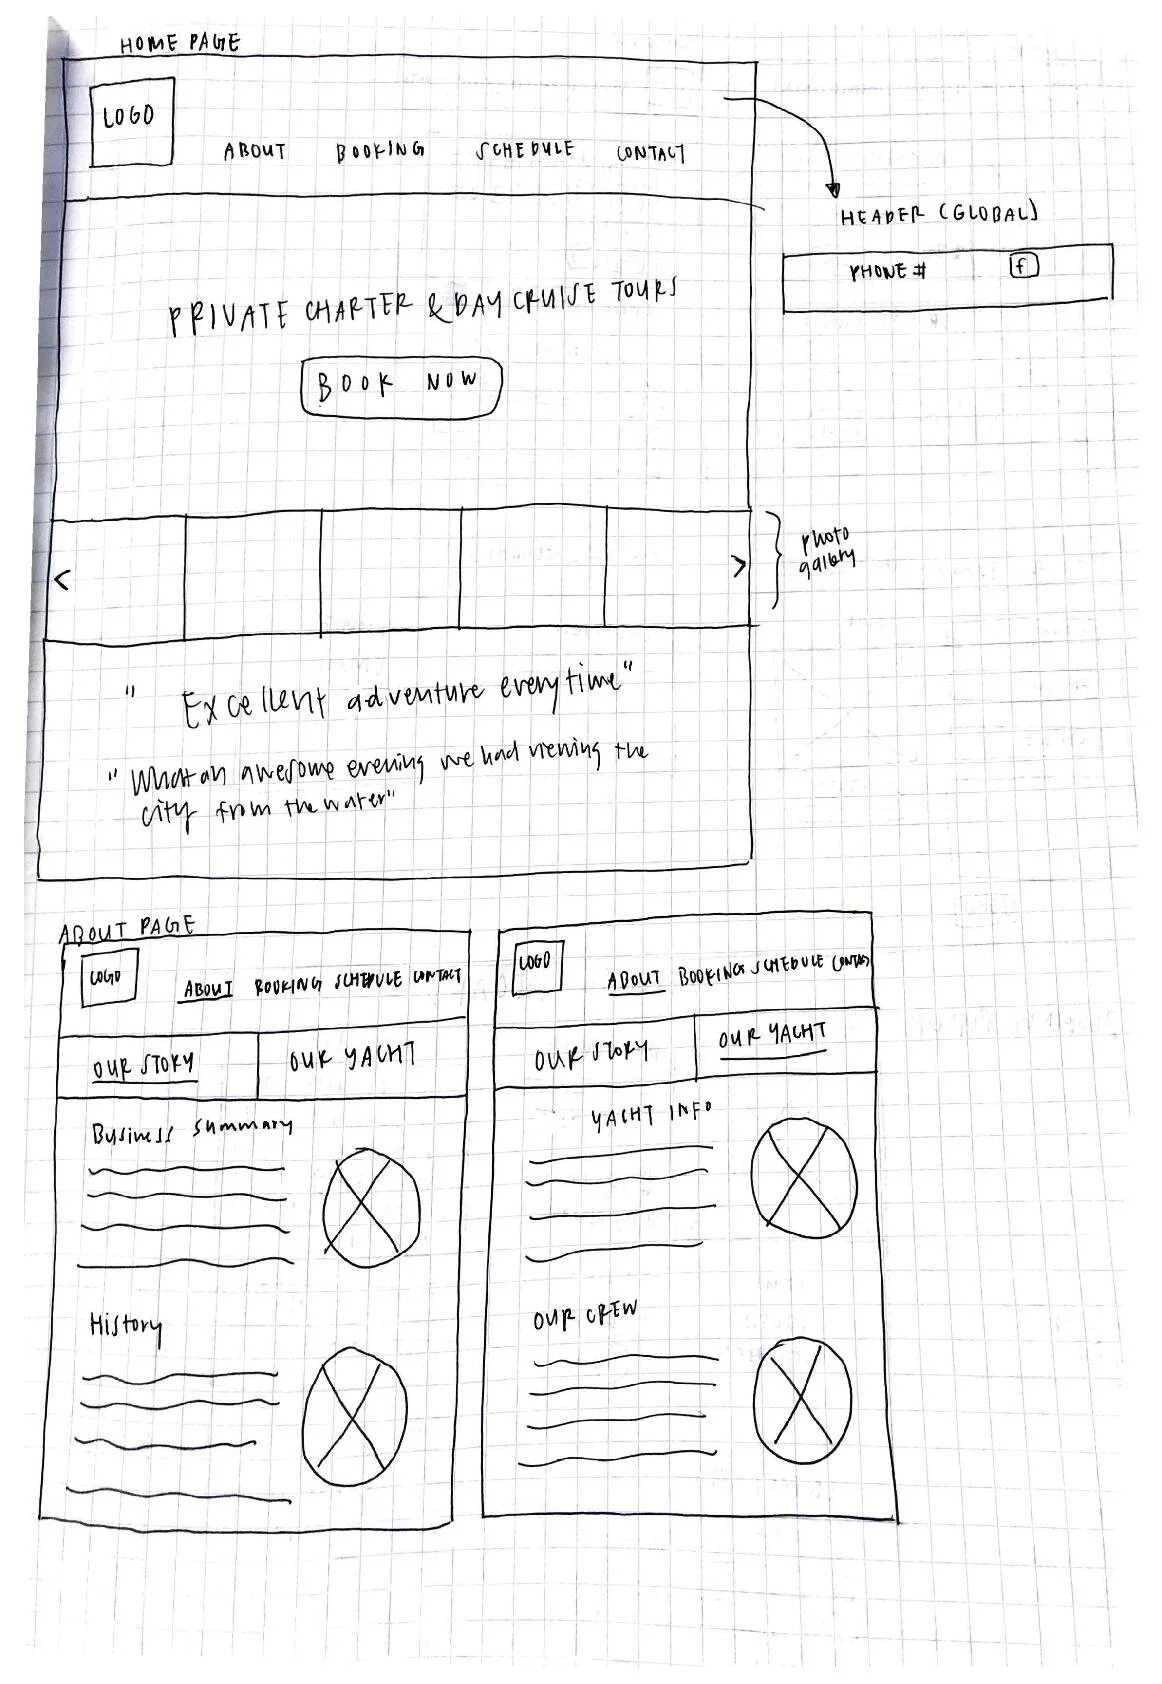 HOME PAGE
LOGO
ABOUT BOOKING SCHEDULE CONTACT
HEADER (GLOBAL)
PHONE # f
PRIVATE CHARTER & DAY CRUISE TOURS
BOOK NOW
< >
photo
gallery
" Excellent adventure everytime"
" What an awesome evening we had viewing the
city from the water"
ABOUT PAGE
LOGO
ABOUT BOOKING SCHEDULE CONTACT
OUR STORY OUR YACHT
Business Summary
History
LOGO
ABOUT BOOKING SCHEDULE CONTACT
OUR STORY OUR YACHT
YACHT INFO
OUR CREW